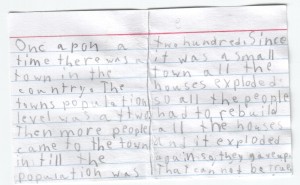 Onc apon a
time there was a
town in the
country. The
towns population
level was a ytwo
Then more people
came to the town
intill the
population was
two hundred. Since
it was a small
town all the
houses exploded
so all the people
had to rebuild
all the houses
and it exploded
again so they gave up
That can not be true